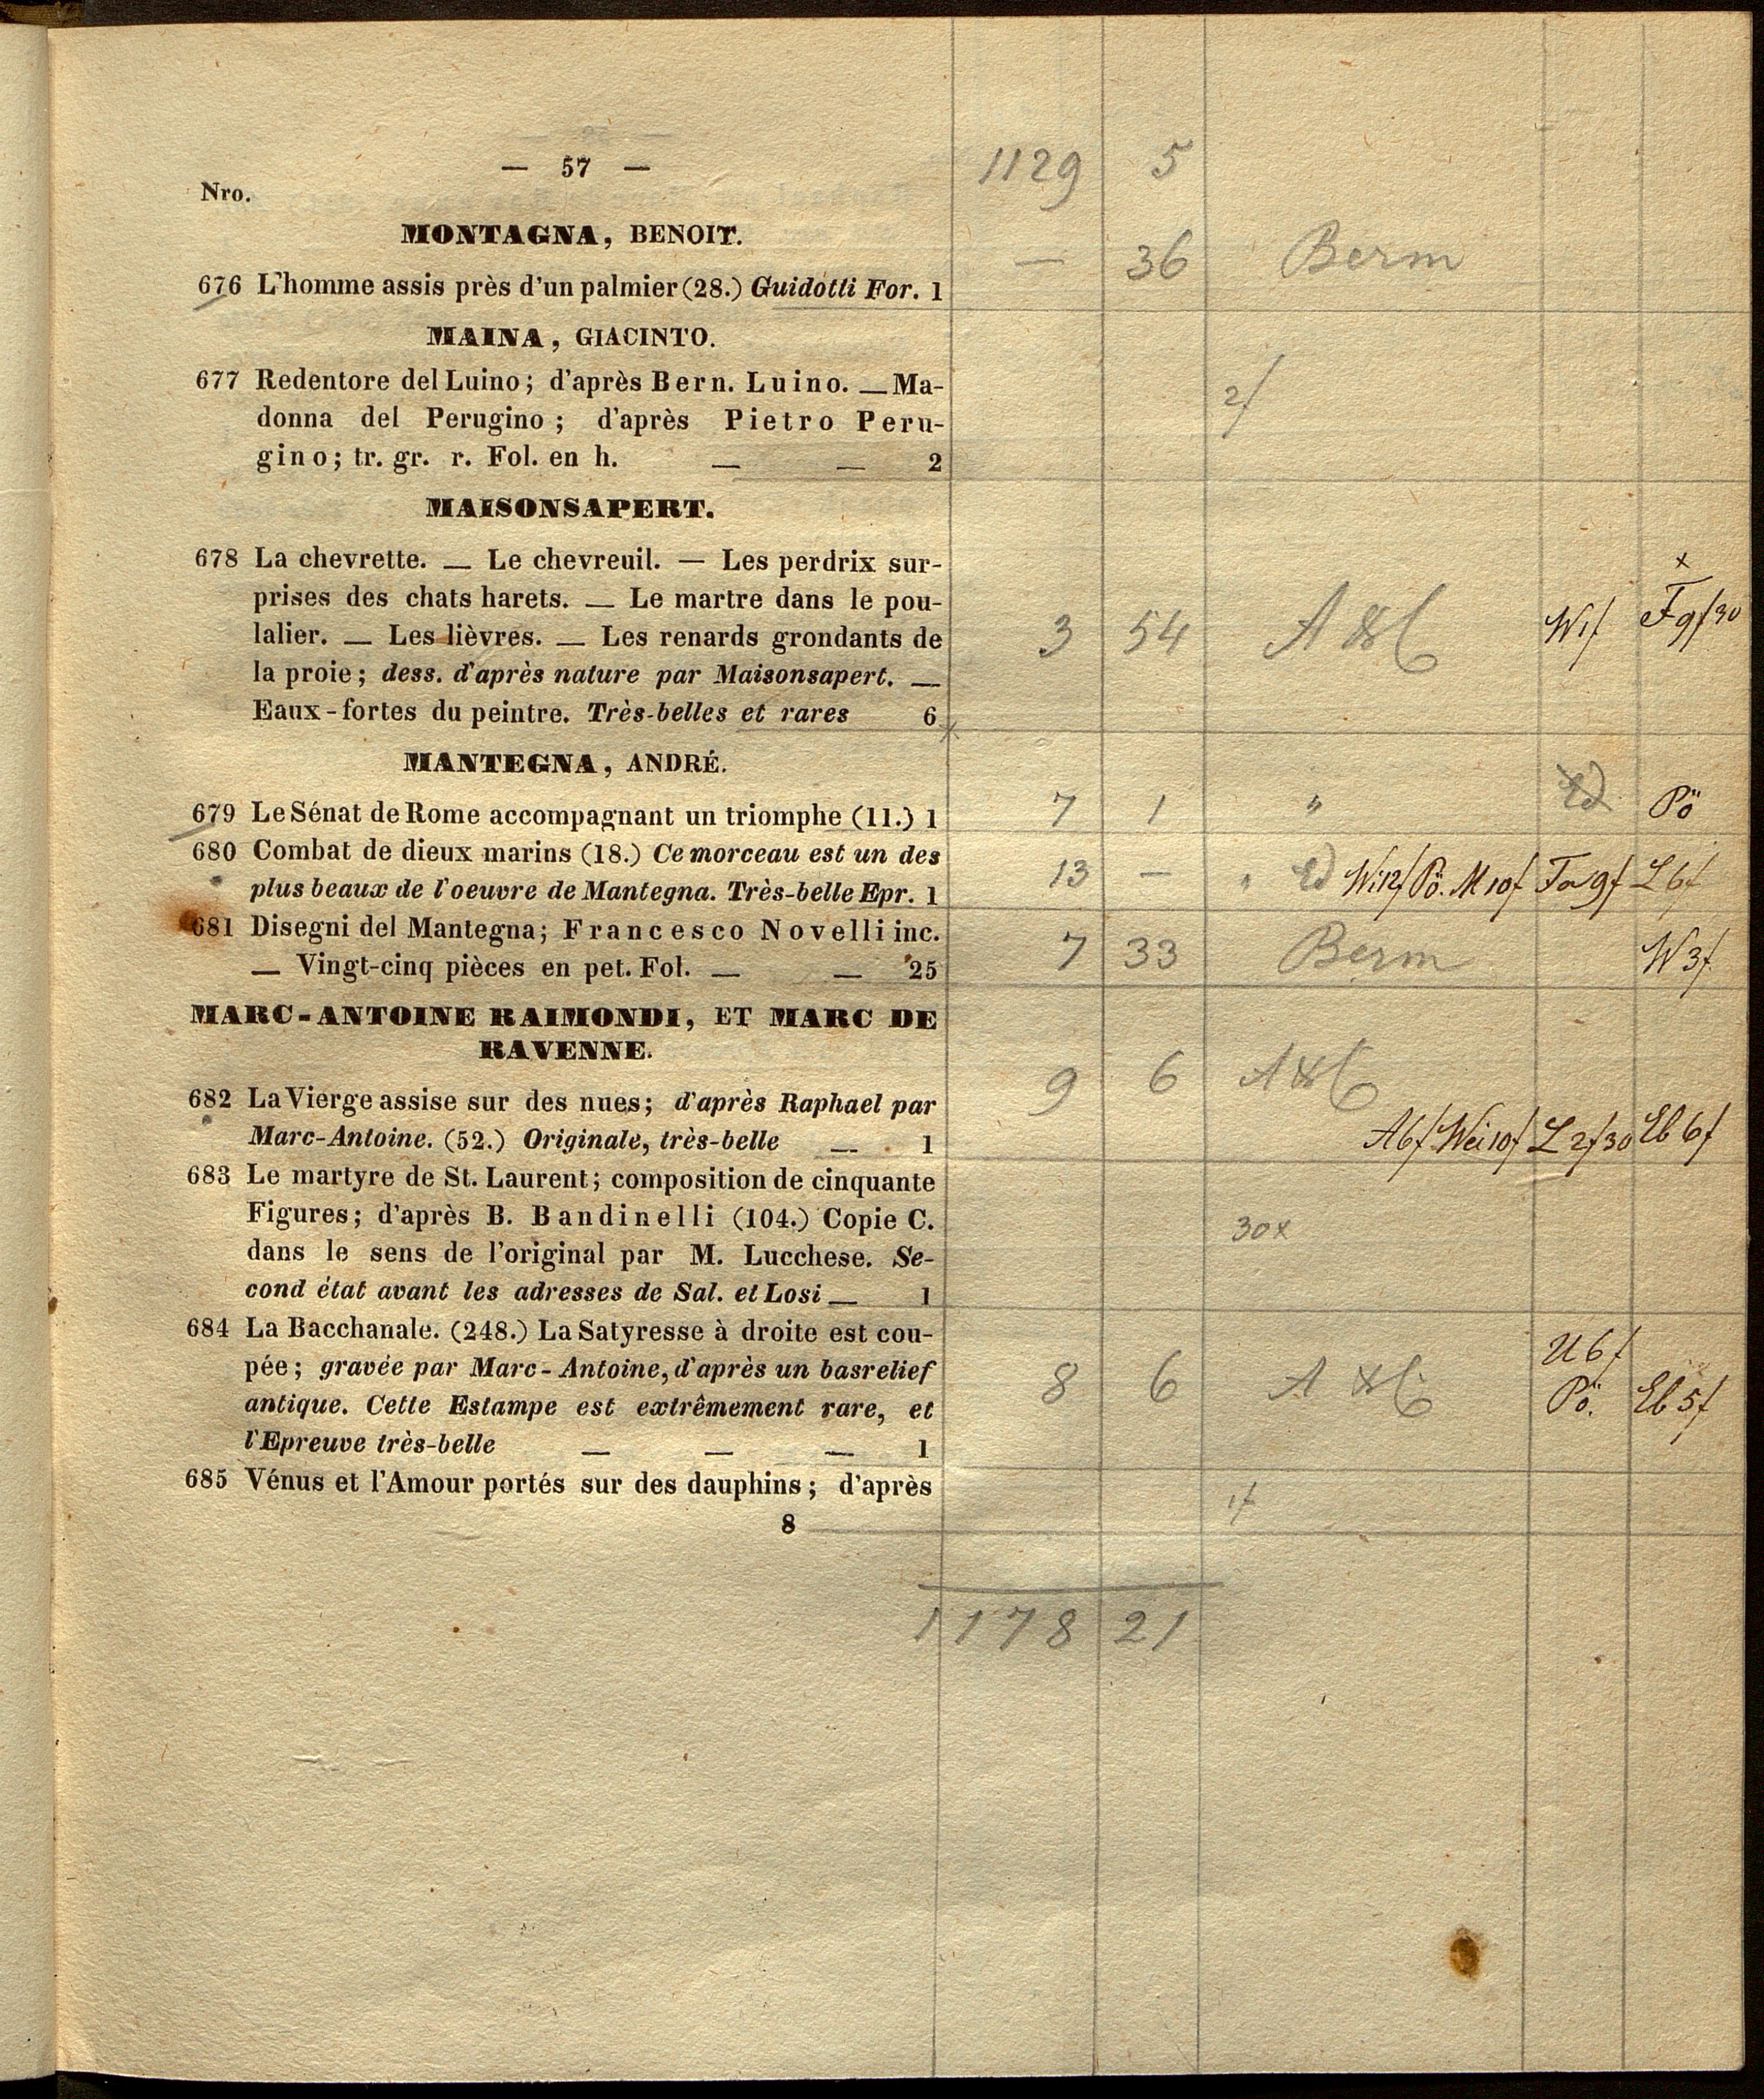 — 57 —
1129 5
Nro.
MONTAGNA, BENOIT.
— 36 Berm
676 L'homme assis près d'un palmier (28.) Guidotti For. 1
MAINA, GIACINTO.
677 Redentore del Luino; d'après Bern. Luino. — Ma-
2f
donna del Perugino; d'après Pietro Peru-
gino; tr. gr. r. Fol. en h. — — 2
MAISONSAPERT.
678 La chevrette. — Le chevreuil. — Les perdrix sur-
prises des chats harets. — Le martre dans le pou-
lalier. — Les lièvres. — Les renards grondants de
3 54 W1f x F9f30
la proie; dess. d'après nature par Maisonsapert. —
Eaux-fortes du peintre. Très-belles et rares 6
MANTEGNA, ANDRÉ.
679 Le Sénat de Rome accompagnant un triomphe (11.) 1
7 1 " Pö
680 Combat de dieux marins (18.) Ce morceau est un des
plus beaux de l'oeuvre de Mantegna. Très-belle Epr. 1
13 — " Wi12f Pö. M10f Fa9f L6f
681 Disegni del Mantegna; Francesco Novelli inc.
— Vingt-cinq pièces en pet. Fol. — — 25
7 33 Berm W3f
MARC-ANTOINE RAIMONDI, ET MARC DE
RAVENNE.
682 La Vierge assise sur des nues; d'après Raphael par
9 6
Marc-Antoine. (52.) Originale, très-belle — 1
A6f Wei10f L2f30 Eb6f
683 Le martyre de St. Laurent; composition de cinquante
Figures; d'après B. Bandinelli (104.) Copie C.
30x
dans le sens de l'original par M. Lucchese. Se-
cond état avant les adresses de Sal. et Losi — 1
684 La Bacchanale. (248.) La Satyresse à droite est cou-
pée; gravée par Marc-Antoine, d'après un basrelief
8 6 U6f Pö. Eb5f
antique. Cette Estampe est extrêmement rare, et
l'Epreuve très-belle — — — 1
685 Vénus et l'Amour portés sur des dauphins; d'après
1f
8
1178 21